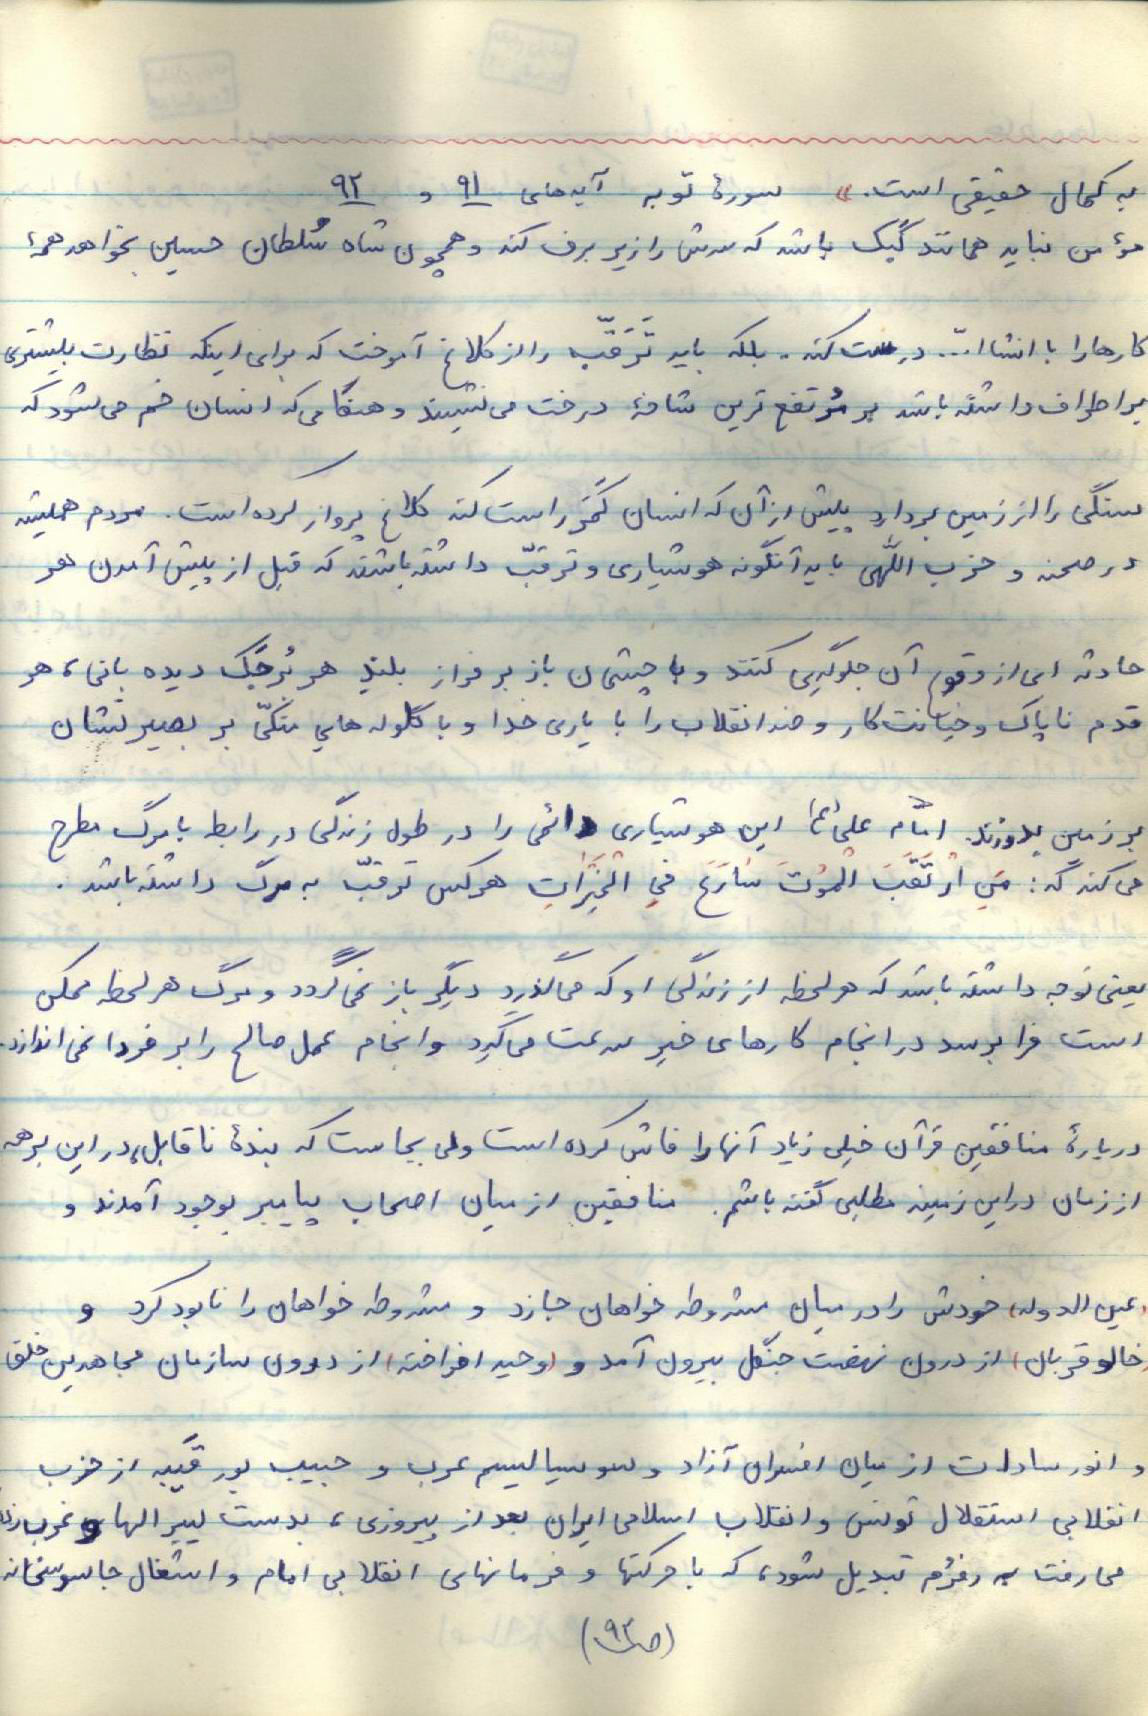 به کمال حقیقی است. » سورهٔ توبه آیه‌های ۹۱ و ۹۲
مؤمن نباید همانند کبک باشد که سرش را زیر برف کند و همچون شاه سُلطان حسین بخواهد همهٔ
کارها را با انشاا... درست کند. بلکه باید تَرَقّب را از کلاغ آموخت که برای اینکه نظارت بیشتری
بر اطراف داشته باشد بر مُرتفع ترین شاخهٔ درخت می‌نشیند و هنگامی که انسان خم می‌شود که
سنگی را از زمین بردارد پیش از آن که انسان کَمَر راست کند کلاغ پرواز کرده است. مردم همیشه
در صحنه و حزب اللّهی باید آنگونه هوشیاری و ترقّب داشته باشند که قبل از پیش آمدن هر
حادثه ای از وقوع آن جلوگیری کنند و با چشمان باز بر فراز بلندِ هر بُرجَک دیده بانی، هر
قدم ناپاک و خیانت‌کار و ضد انقلاب را با یاری خدا و با گلوله هایِ متکّی بر بصیرتشان
بر زمین بدوزند. امّام علی(ع) این هوشیاری دائمی را در طول زندگی در رابطه با مرگ مطرح
می‌کند که: مَنِ ارْتَقَبَ الْمَوْتَ سٰارَعَ فِی الْخَیْرٰاتِ هرکس ترقبّ به مرگ داشته باشد.
یعنی توجه داشته باشد که هر لحظه از زندگی او که می‌گذرد دیگر باز نمی‌گردد و مرگ هر لحظه ممکن
است فرا برسد در انجام کارهای خیر سرعت می‌گیرد و انجام عمل صالح را بر فردا نمی‌اندازد.
دربارهٔ منافقین قرآن خیلی زیاد آنها را فاش کرده است ولی بجاست که بندهٔ ناقابل، در این برهه
از زمان در این زمینه مطلبی گفته باشم. منافقین از میان اصحاب پیامبر بوجود آمدند و
(عین الدوله) خودش را در میان مشروطه خواهان جا زد و مشروطه خواهان را نابود کرد و
(خالو قربان) از درون نهضت جنگل بیرون آمد و (وحید افراخته) از درون سازمان مجاهدین خلق
و انور سادات از میان افسران آزاد و سوسیالیسم عرب و حبیب بورقیبه از حزب
انقلابی استقلال تونس و انقلاب اسلامی ایران بعد از پیروزی، بدست لیبرالها و غرب‌زده
می‌رفت به رفرُم تبدیل شود، که با حرکتها و فرمانهای انقلابی امام و اشغال جاسوسخانه
(ص۹۳)